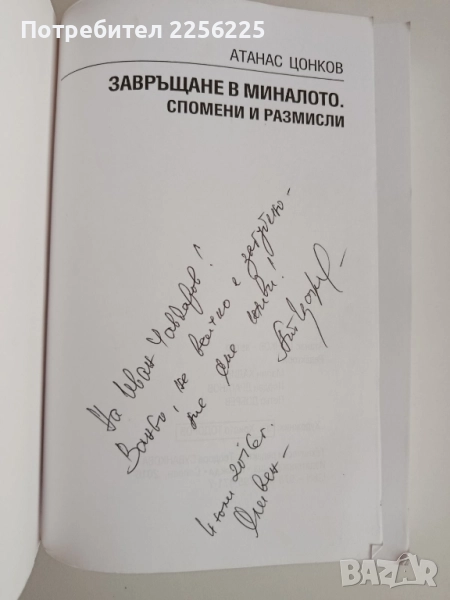 Потребител 2256225
АТАНАС ЦОНКОВ
ЗАВРЪЩАНЕ В МИНАЛОТО.
СПОМЕНИ И РАЗМИСЛИ
На Иван Чавдаров!
Ваньо, не всичко е загубено –
ние сме живи!
Ат Цонк
Юли 2016г.
Сливен –
bazar.bg